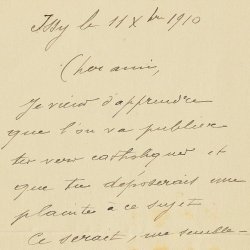 Issy le 11 Xbre 1910
Cher ami,
Je viens d'apprendre
que l'on va publier
tes vers catholiques et
que tu déposerais une
plainte à ce sujet
Ce serait, me semble-